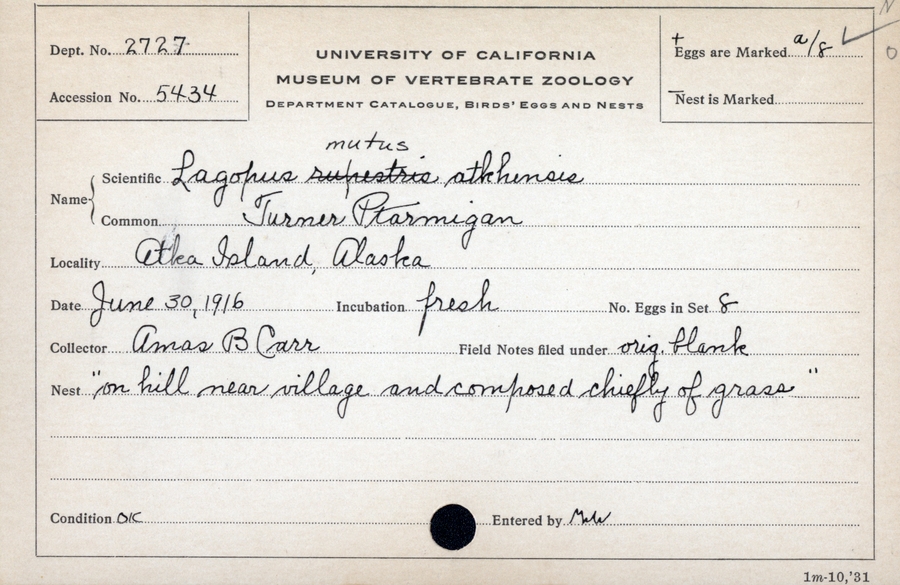 Dept. No. 2727
Accession No. 5434
UNIVERSITY OF CALIFORNIA
MUSEUM OF VERTEBRATE ZOOLOGY
DEPARTMENT CATALOGUE, BIRDS' EGGS AND NESTS
+
Eggs are Marked a/8 ✓
N
O
— Nest is Marked
mutus
Name { Scientific Lagopus rupestris atkhensis
Common Turner Ptarmigan
Locality Atka Island, Alaska
Date June 30, 1916 Incubation fresh No. Eggs in Set 8
Collector Amas B Carr Field Notes filed under orig. blank
Nest "on hill near village and composed chiefly of grass"
Condition OK Entered by
1m-10,'31